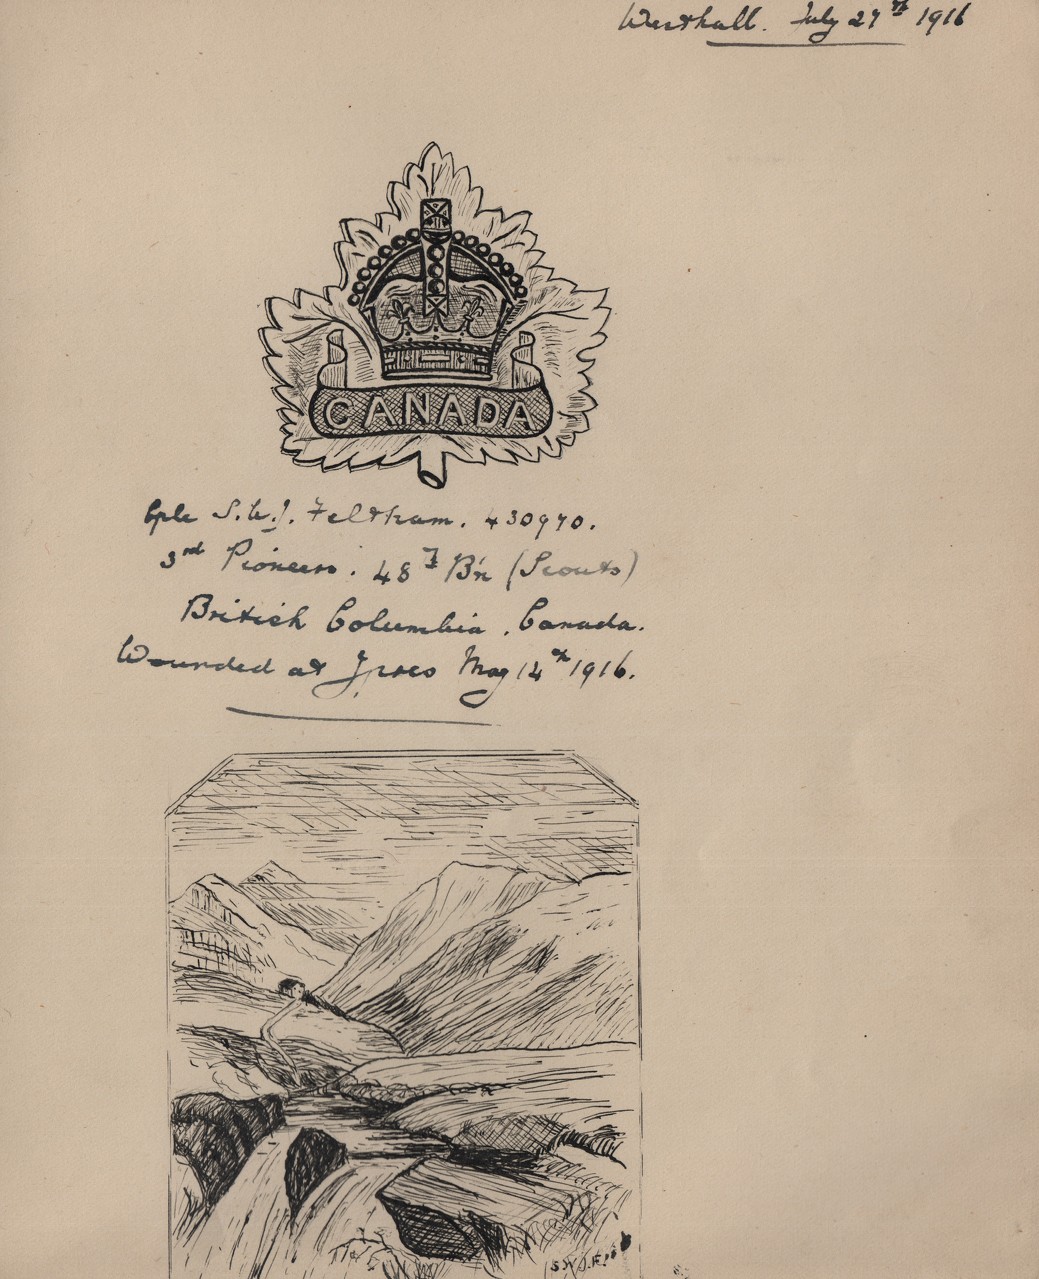 Westhall. July 27th 1916
CANADA
Cple S.W.J. Feltham. 430970.
3rd Pioneers. 48th B'n (Scouts)
British Columbia, Canada.
Wounded at Ypres May 14th 1916.
S.W.J.F.